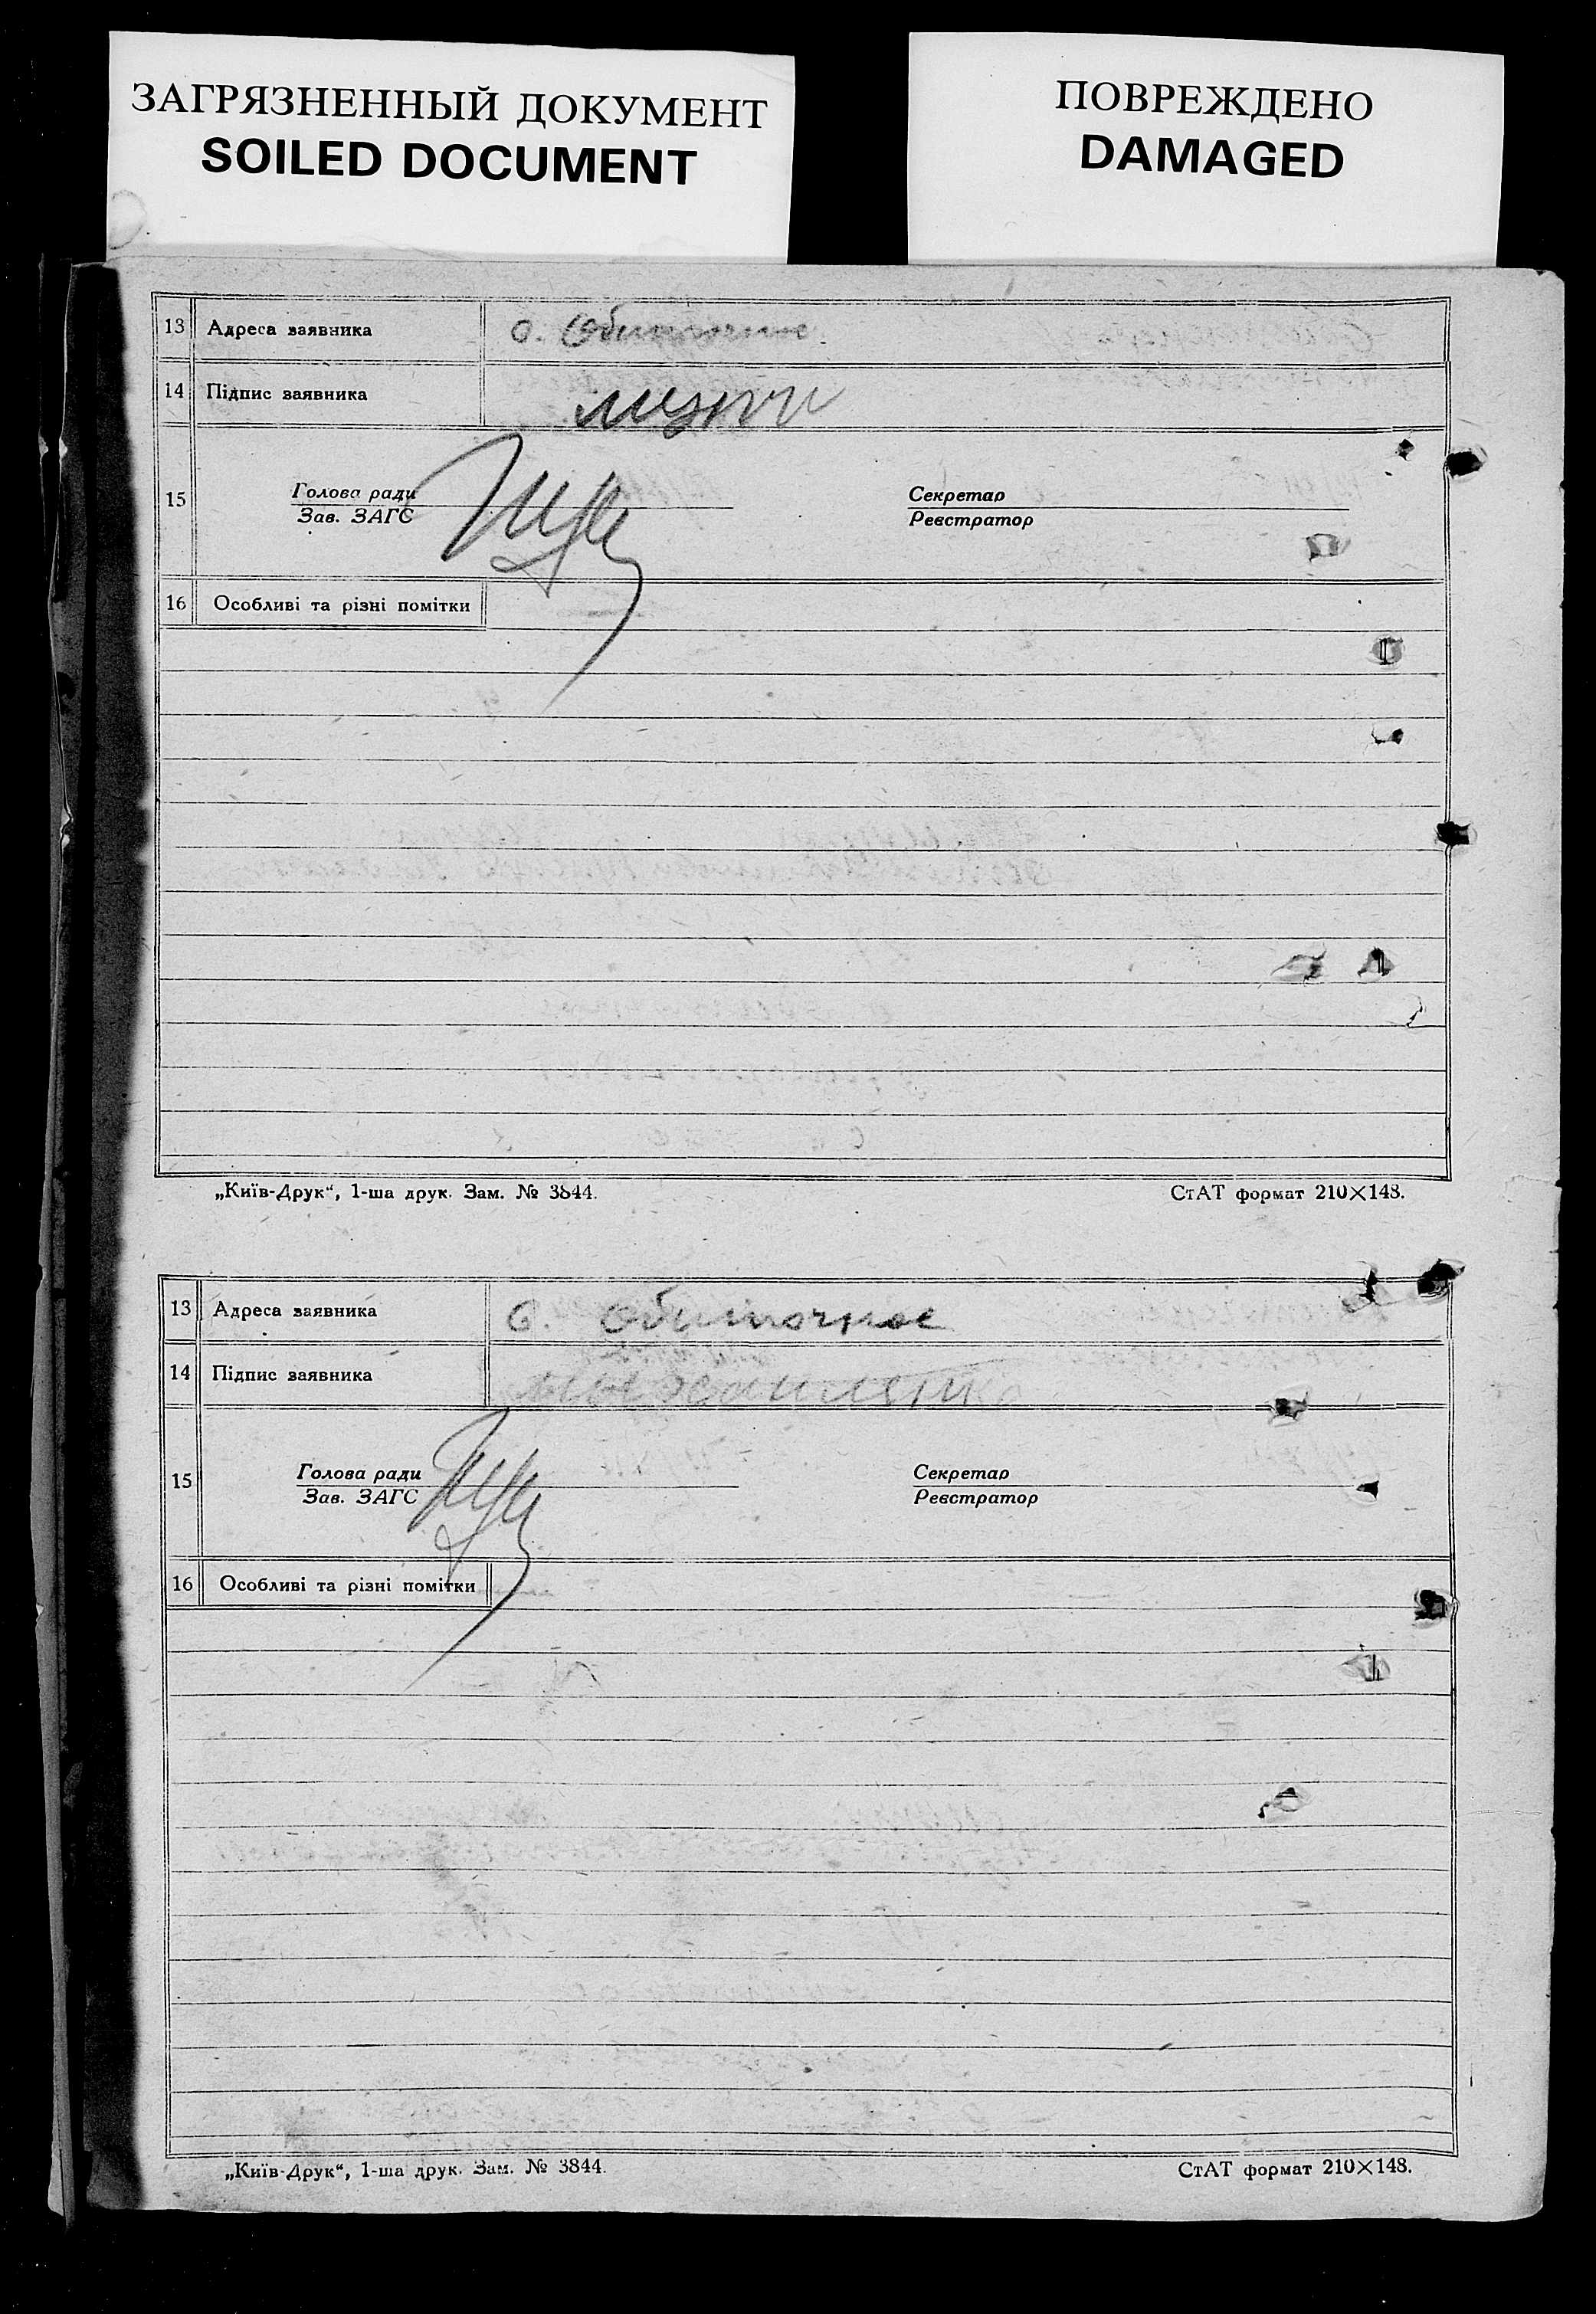 ЗАГРЯЗНЕННЫЙ ДОКУМЕНТ
SOILED DOCUMENT
ПОВРЕЖДЕНО
DAMAGED
13 Адреса заявника с. Обиточное
14 Підпис заявника
15 Голова ради
Зав. ЗАГС
Секретар
Реєстратор
16 Особливі та різні помітки
„Київ-Друк“, 1-ша друк. Зам. № 3844. СтАТ формат 210×148.
13 Адреса заявника с. Обиточное
14 Підпис заявника
15 Голова ради
Зав. ЗАГС
Секретар
Реєстратор
16 Особливі та різні помітки
„Київ-Друк“, 1-ша друк. Зам. № 3844. СтАТ формат 210×148.